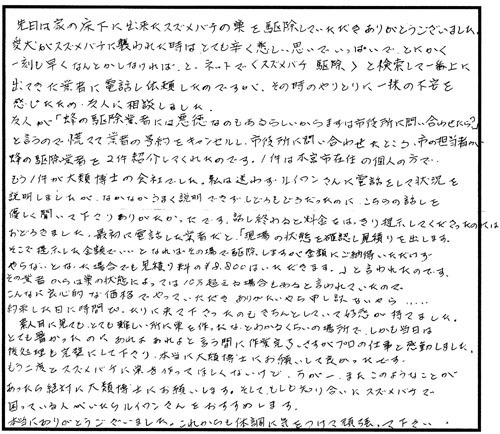 先日は家の床下に出来たスズメバチの巣を駆除していただきありがとうございました。
愛犬がスズメバチに襲われた時はとても辛く悲しい思いでいっぱいで、とにかく
一刻も早くなんとかしなければ、と、ネットでくスズメバチ 駆除〉と検索して一番上に
出てきた業者に電話し依頼したのですが、その時のやりとりに一抹の不安を
感じたため友人に相談しました。
友人が「蜂の駆除業者には悪徳なのもあるらしいからまずは市役所に問い合わせたら?」
と言うので慌てて業者の予約をキャンセルし、市役所に問い合わせたところ、市の担当者から
蜂の駆除業者を2件紹介してくれたのです。1件は本宮市在住の個人の方で
もう1件が大類博士の会社でした。私は迷わずルイワンさんに電話をして状況を
説明しましたが、なかなかうまく説明できずしどろもどろだったのに、こちらの話しを
優しく聞いて下さりありがたかったです。話し終わると料金をはっきり提示してくださったのには
おどろきました。最初に電話した業者だと、「現場の状態を確認し見積りを出します。
そこで提示した金額でいい、となればその場で駆除しますが金額にご納得いただけず
やらない、となった場合でも見積り料の¥8,800はいただきます。」と言われたのです。
その業者からは巣の状態によっては10万超える場合もあると言われていたので
こんなに良心的な価格でやっていただきありがたいやら申し訳ないやら……
約束した日に時間ぴったりに来て下さったのもきちんとしていて好感が持てました。
素人目に見ても、とても難しい所に巣を作ったな、とわかるくらいの場所で、しかも当日は
とても暑かったのにあれよあれよと言う間に作業完了、さすがプロの仕事と感動しました。
後処理も完璧にして下さり、本当に大類博士にお願いして良かったです。
もう二度とスズメバチに巣を作ってほしくないけど、万が一、またこのようなことが
あったら絶対に大類博士にお願いします。そして、もしも知り合いにスズメバチで
困っている人がいたらルイワンさんをおすすめします。
本当にありがとうございました。これからも体調に気をつけて頑張って下さい。